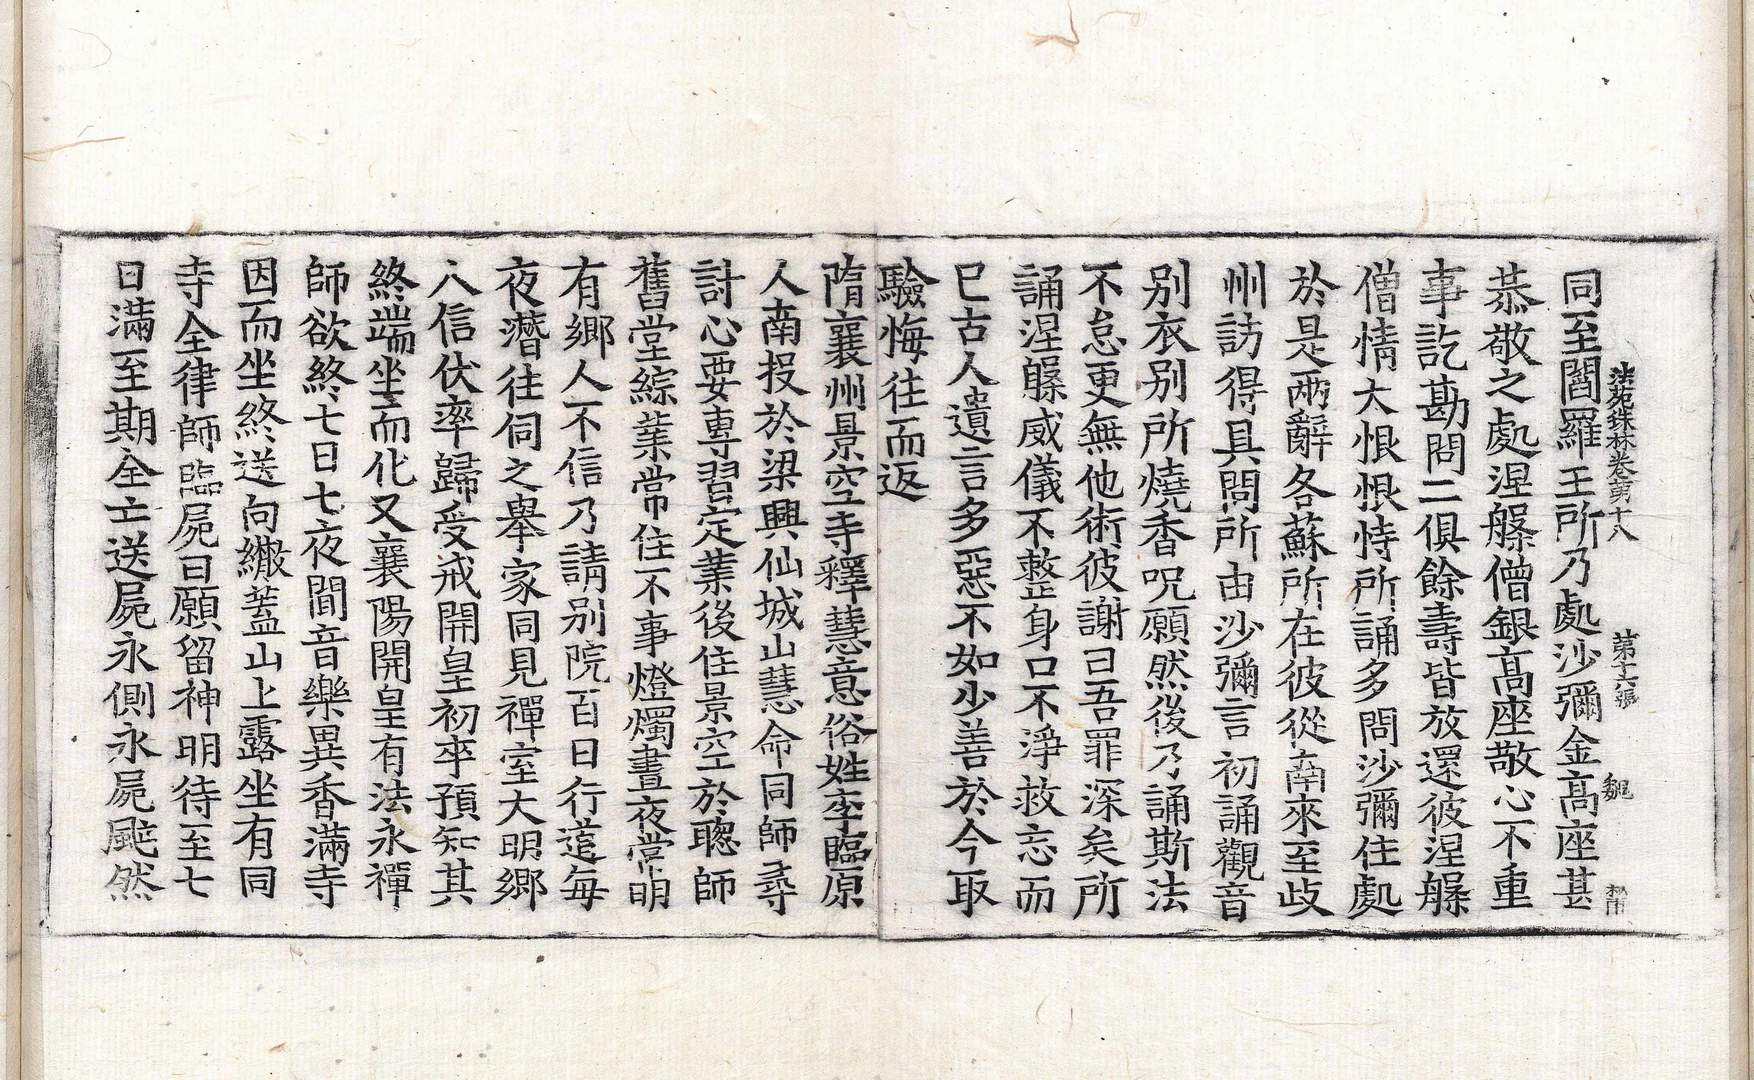 法苑珠林卷第十八 第十六張 魏
同至閻羅王所乃處沙彌金高座甚
恭敬之處涅槃僧銀高座敬心不重
事訖勘問二俱餘壽皆放還彼涅槃
僧情大恨恨恃所誦多問沙彌住處
於是兩辭各蘇所在彼從南來至歧
州訪得具問所由沙彌言初誦觀音
別衣別所燒香呪願然後乃誦斯法
不怠更無他術彼謝曰吾罪深矣所
誦涅槃威儀不整身口不淨救忘而
已古人遺言多惡不如少善於今取
驗悔往而返
隋襄州景空寺釋慧意俗姓李臨原
人南投於梁興仙城山慧命同師尋
討心要專習定業後住景空於聰師
舊堂綜業常住不事燈燭晝夜常明
有鄉人不信乃請別院百日行道每
夜潛往伺之舉家同見禪室大明鄉
人信伏率歸受戒開皇初卒預知其
終端坐而化又襄陽開皇有法永禪
師欲終七日七夜聞音樂異香滿寺
因而坐終送向繖蓋山上露坐有同
寺全律師臨屍曰願留神明待至七
日滿至期全亡送屍永側永屍颯然